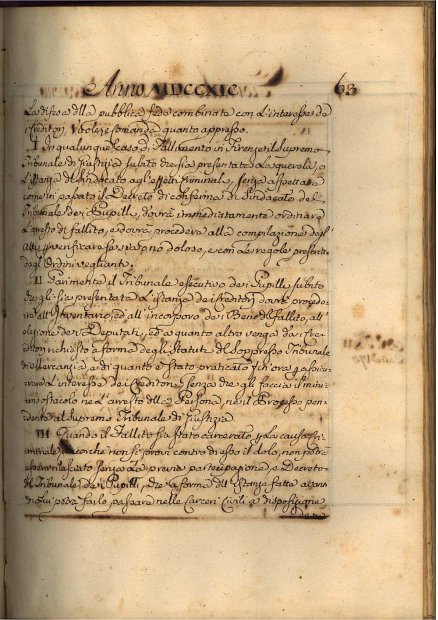 Anno MDCCXIC 63
La difesa della pubblica fede combinata con l'interesse de
Creditori, vuole e comanda quanto appresso.
I. In qualunque caso di Fallimento in Firenze il Supremo
Tribunale di Giustizia subito che sia presentata la querela, o
l'istanza del Sindacato agl'effetti Criminali, senza aspettare
come in passato il Decreto di conferma di Sindacato del
Tribunale dei Pupilli, dovrà immediatamente ordinare
l'arresto del fallito, e dovrà procedere alla compilazione degl'
Atti per verificare se vi sia o no doloso, e con le regole presenti
dagl'Ordini veglianti.
II. Parimente il Tribunale esecutivo dei Pupilli subito
che gli sia presentata l'istanza dei Creditori dovrà procede
re all'Inventario, ed all'incorporo dei Beni del fallito, all'
elezione dei Deputati, ed a quanto altro venga dai Cre
ditori richiesto a forma degli Statuti del Soppresso Tribunale
di Mercanzia, e di quanto è stato praticato fin'ora per assicu
rare l'interesse dei Creditori senza che gli faccia il mini
mo ostacolo nè l'arresto della Persona, nè il Processo pen
dente al Supremo Tribunale di Giustizia.
III. Quando il Fallito sia stato carcerato per la causa Cri
minale, ancorchè non si provi contro di esso il dolo, non potrà
esser rilasciato senza la previa partecipazione e Decreto
del Tribunale dei Pupilli, che a forma dell'Istanze fatte avanti
di Lui potrà farlo passare nelle Carceri Civili a disposizione